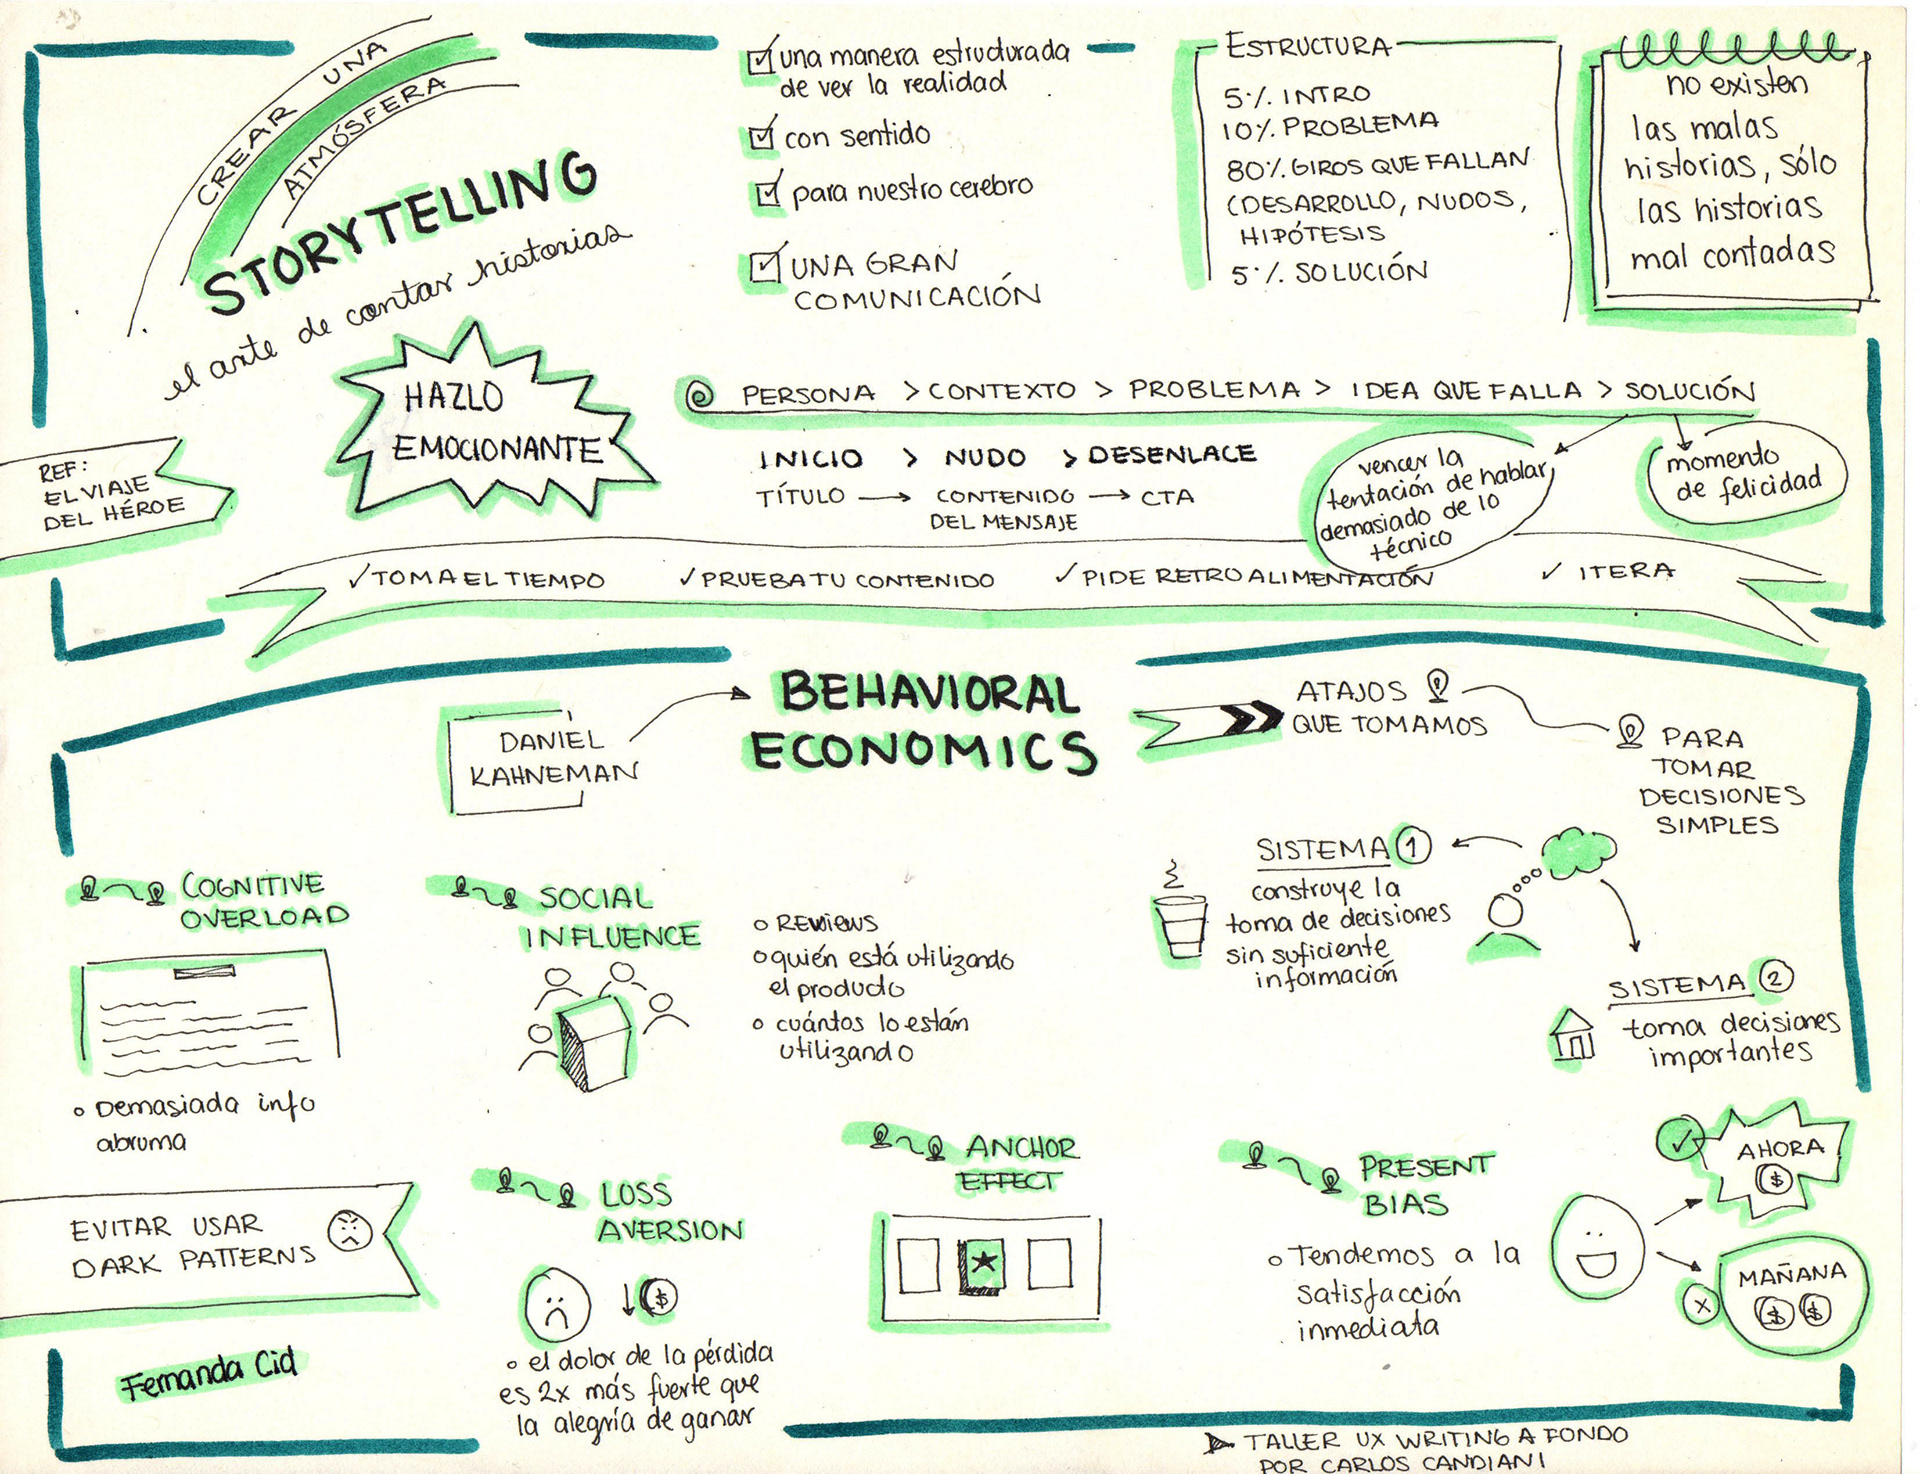 CREAR UNA
ATMÓSFERA
STORYTELLING
el arte de contar historias
una manera estructurada
de ver la realidad
con sentido
para nuestro cerebro
UNA GRAN
COMUNICACIÓN
ESTRUCTURA
5% INTRO
10% PROBLEMA
80% GIROS QUE FALLAN
(DESARROLLO, NUDOS,
HIPÓTESIS
5% SOLUCIÓN
no existen
las malas
historias, sólo
las historias
mal contadas
HAZLO
EMOCIONANTE
REF:
EL VIAJE
DEL HÉROE
PERSONA > CONTEXTO > PROBLEMA > IDEA QUE FALLA > SOLUCIÓN
INICIO > NUDO > DESENLACE
TÍTULO → CONTENIDO → CTA
DEL MENSAJE
vencer la
tentación de hablar
demasiado de lo
técnico
momento
de felicidad
✓ TOMA EL TIEMPO ✓ PRUEBA TU CONTENIDO ✓ PIDE RETROALIMENTACIÓN ✓ ITERA
DANIEL
KAHNEMAN
BEHAVIORAL
ECONOMICS
ATAJOS
QUE TOMAMOS
PARA
TOMAR
DECISIONES
SIMPLES
SISTEMA 1
construye la
toma de decisiones
sin suficiente
información
SISTEMA 2
toma decisiones
importantes
COGNITIVE
OVERLOAD
Demasiada info
abruma
SOCIAL
INFLUENCE
REVIEWS
quién está utilizando
el producto
cuántos lo están
utilizando
EVITAR USAR
DARK PATTERNS
LOSS
AVERSION
$
el dolor de la pérdida
es 2x más fuerte que
la alegría de ganar
ANCHOR
EFFECT
PRESENT
BIAS
Tendemos a la
satisfacción
inmediata
AHORA
$
MAÑANA
$ $
Fernanda Cid
TALLER UX WRITING A FONDO
POR CARLOS CANDIANI